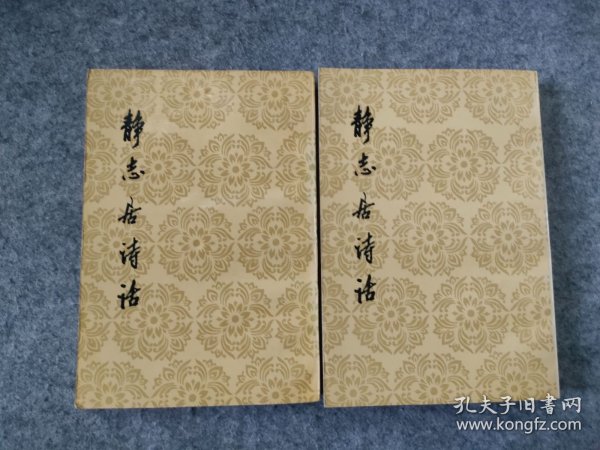 静志居诗话
静志居诗话
孔夫子旧書网
www.kongfz.com